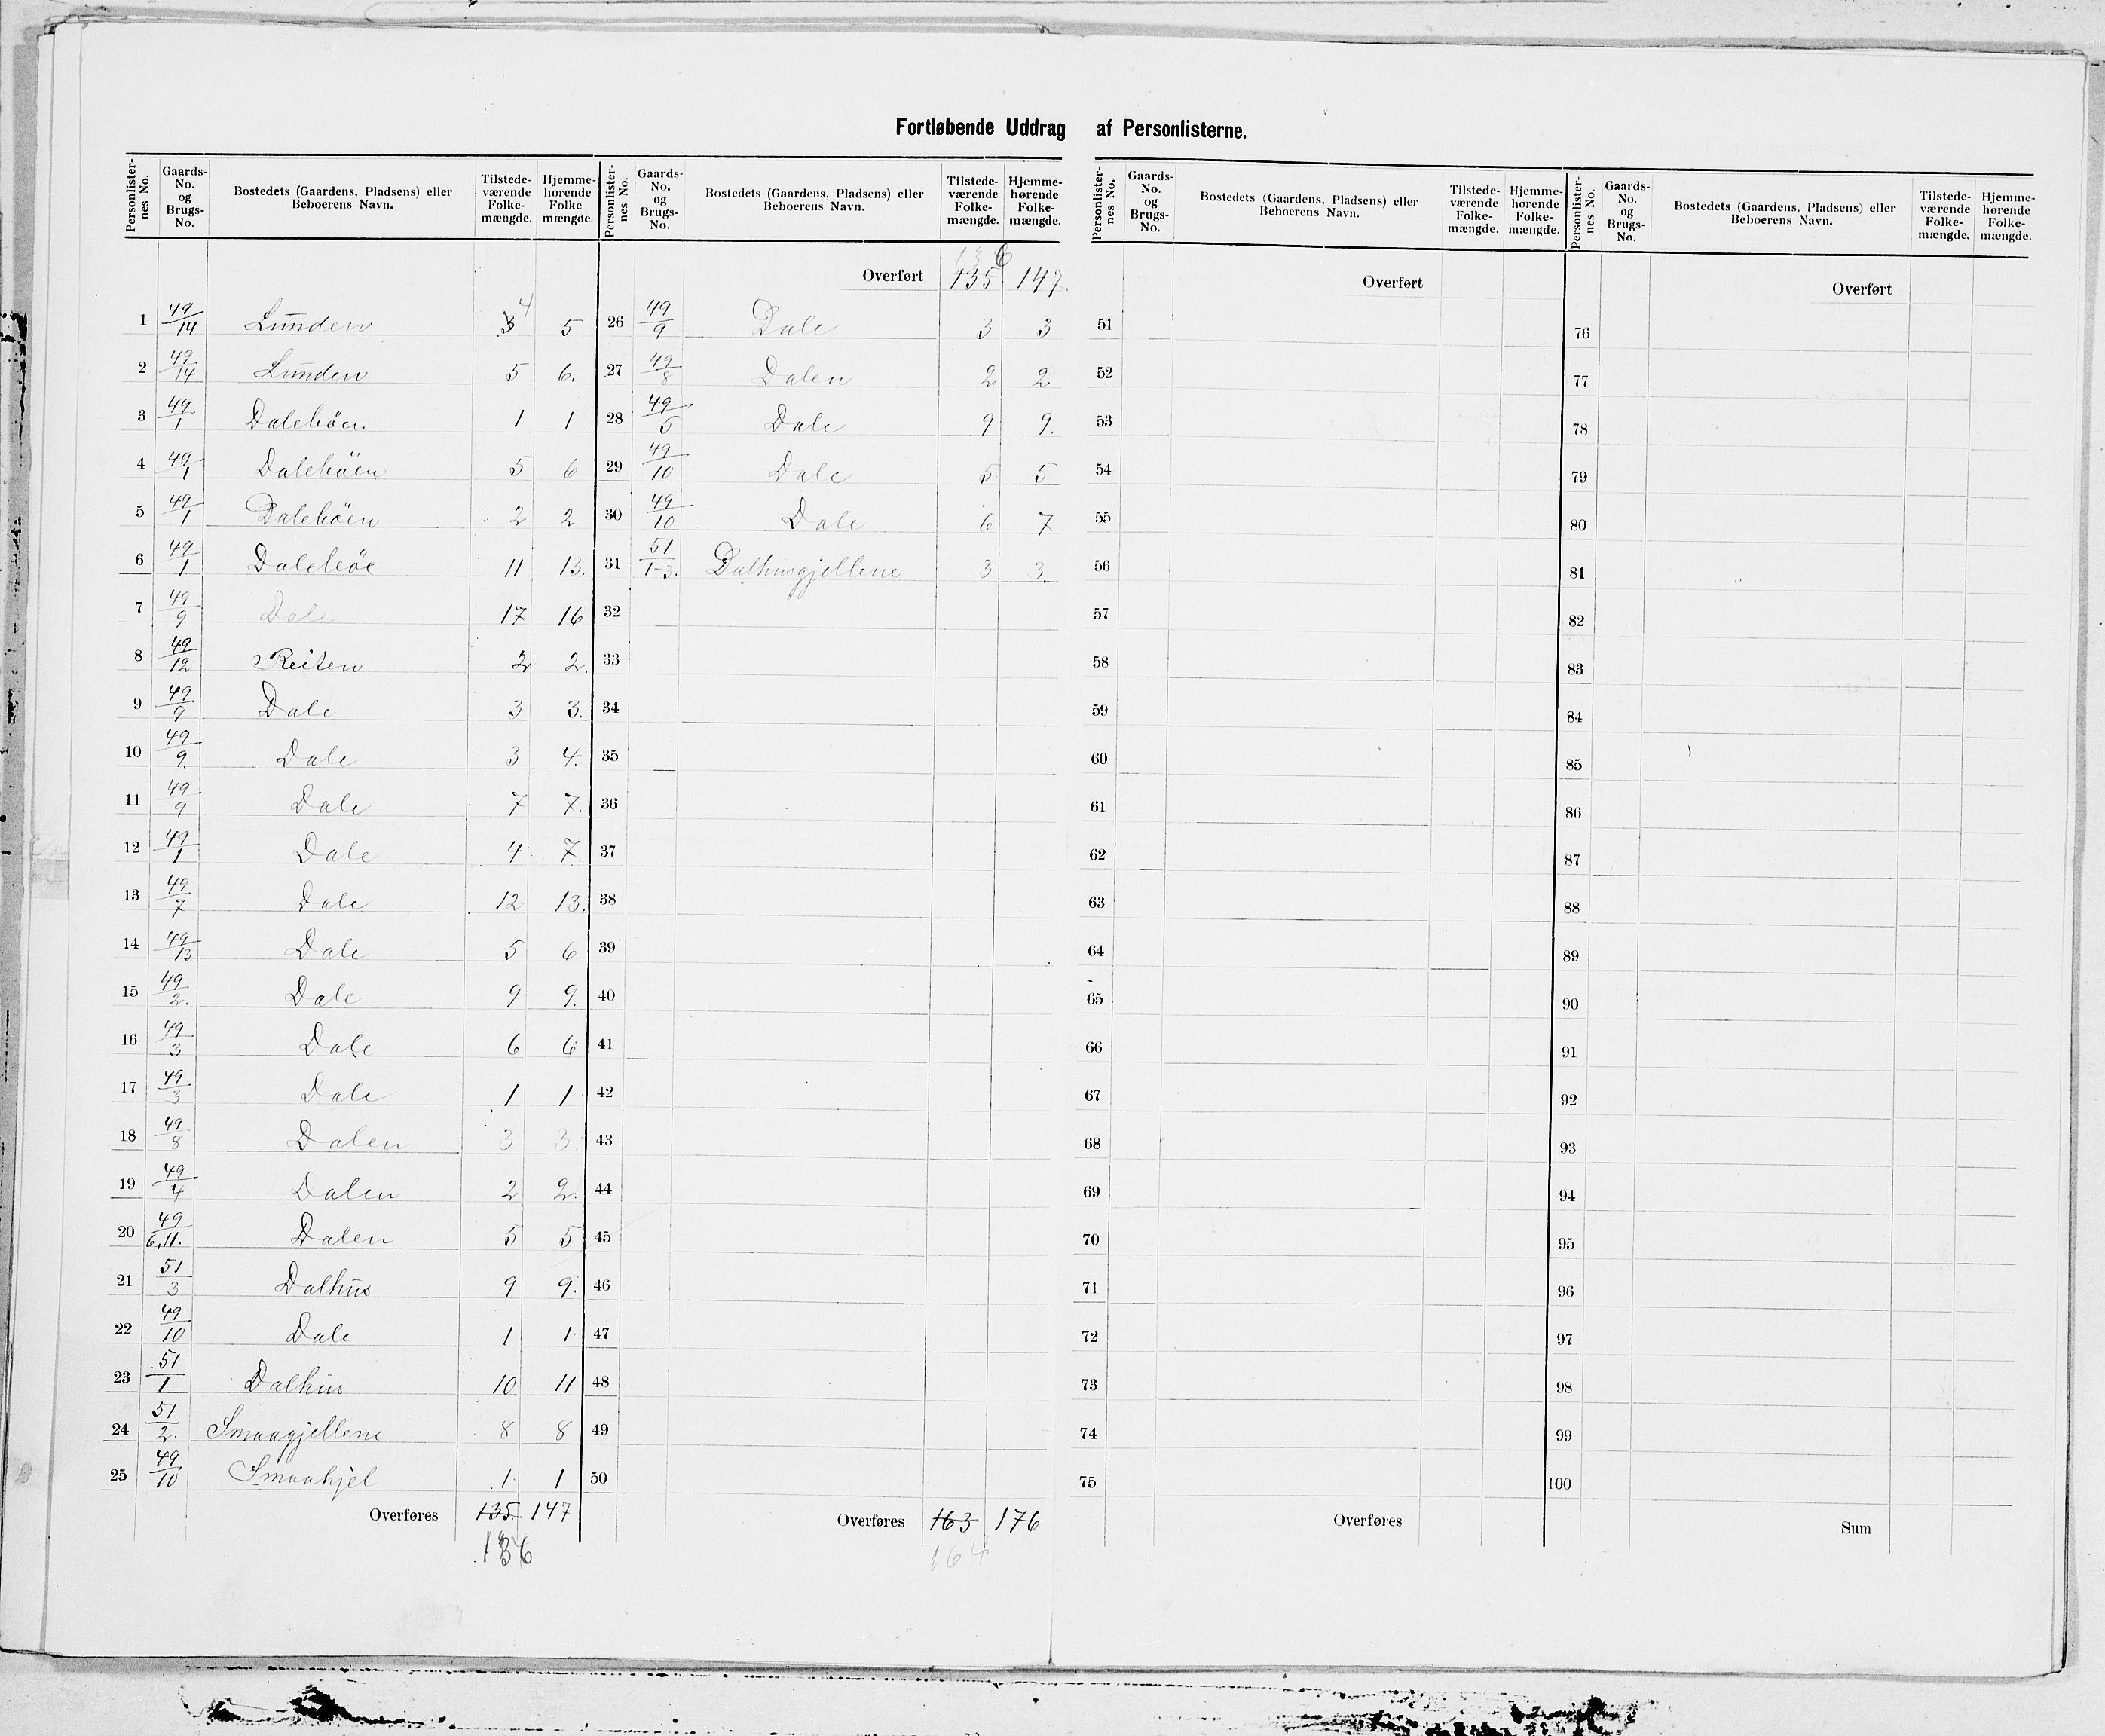 Fortløbende Uddrag af Personlisterne.
Personlisternes No. Gaards-No. og Brugs-No. Bostedets (Gaardens, Pladsens) eller Beboerens Navn. Tilstedeværende Folkemængde. Hjemmehørende Folke mængde.
1 49/14 Lunden 3 4 5
2 49/14 Lunden 5 6.
3 49/1 Daleböen 1 1
4 49/1 Daleböen 5 6
5 49/1 Daleböen 2 2
6 49/1 Daleböe 11 13.
7 49/9 Dale 17 16
8 49/12 Reiten 2 2.
9 49/9 Dale 3 3.
10 49/9. Dale 3 4.
11 49/9 Dale 7 7.
12 49/1 Dale 4 7.
13 49/7 Dale 12 13.
14 49/13 Dale 5 6
15 49/2. Dale 9 9.
16 49/3 Dale 6 6
17 49/3 Dale 1 1
18 49/8 Dalen 3 3.
19 49/4 Dalen 2 2.
20 49/6,11. Dalen 5 5
21 51/3 Dalhus 9 9.
22 49/10 Dale 1 1
23 51/1 Dalhus 10 11
24 51/2. Smaagjellene 8 8
25 49/10 Smaahjel 1 1
Overføres 135. 147
136
Personlisternes No. Gaards-No. og Brugs-No. Bostedets (Gaardens, Pladsens) eller Beboerens Navn. Tilstedeværende Folkemængde. Hjemmehørende Folkemængde.
136
Overført 135 147.
26 49/9 Dale 3 3
27 49/8 Dalen 2 2
28 49/5 Dale 9 9.
29 49/10 Dale 5 5
30 49/10 Dale 6 7
31 51/1-3. Dalhusgjellene 3 3.
32
33
34
35
36
37
38
39
40
41
42
43
44
45
46
47
48
49
50
Overføres 163 176
164
Personlisternes No. Gaards-No. og Brugs-No. Bostedets (Gaardens, Pladsens) eller Beboerens Navn. Tilstedeværende Folkemængde. Hjemmehørende Folkemængde.
Overført
51
52
53
54
55
56
57
58
59
60
61
62
63
64
65
66
67
68
69
70
71
72
73
74
75
Overføres
Personlisternes No. Gaards-No. og Brugs-No. Bostedets (Gaardens, Pladsens) eller Beboerens Navn. Tilstedeværende Folkemængde. Hjemmehørende Folkemængde.
Overført
76
77
78
79
80
81
82
83
84
85
86
87
88
89
90
91
92
93
94
95
96
97
98
99
100
Sum